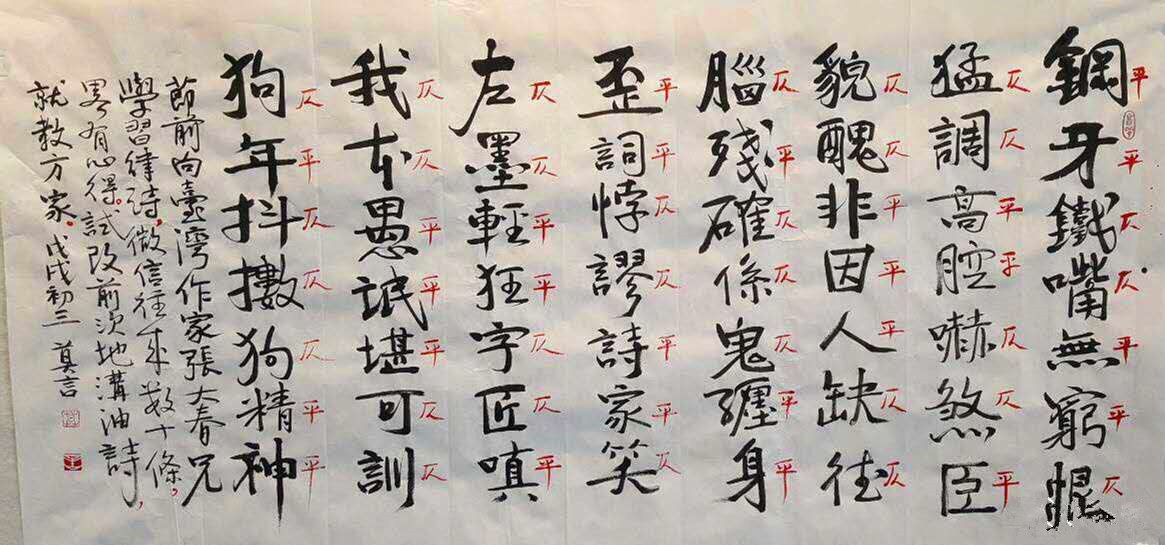 平平仄仄平平仄
鋼牙鐵嘴無窮
仄仄平平仄仄平
猛調高腔嚇煞臣
仄仄平平平仄仄
貌醜非因人缺
仄平仄仄仄平平
腦殘確係鬼纏身
平平仄仄平平仄
歪詞悖謬詩家笑
仄仄平平仄仄平
左墨輕狂字匠嗔
仄仄平平平仄仄
我本愚氓堪可訓
仄平仄仄仄平平
狗年抖擻狗精神
節前向臺灣作家張大春兄
學習律詩,微信往來數十條,
畧有心得。試改前次地溝油詩,
就教方家。戊戌初三 莫言